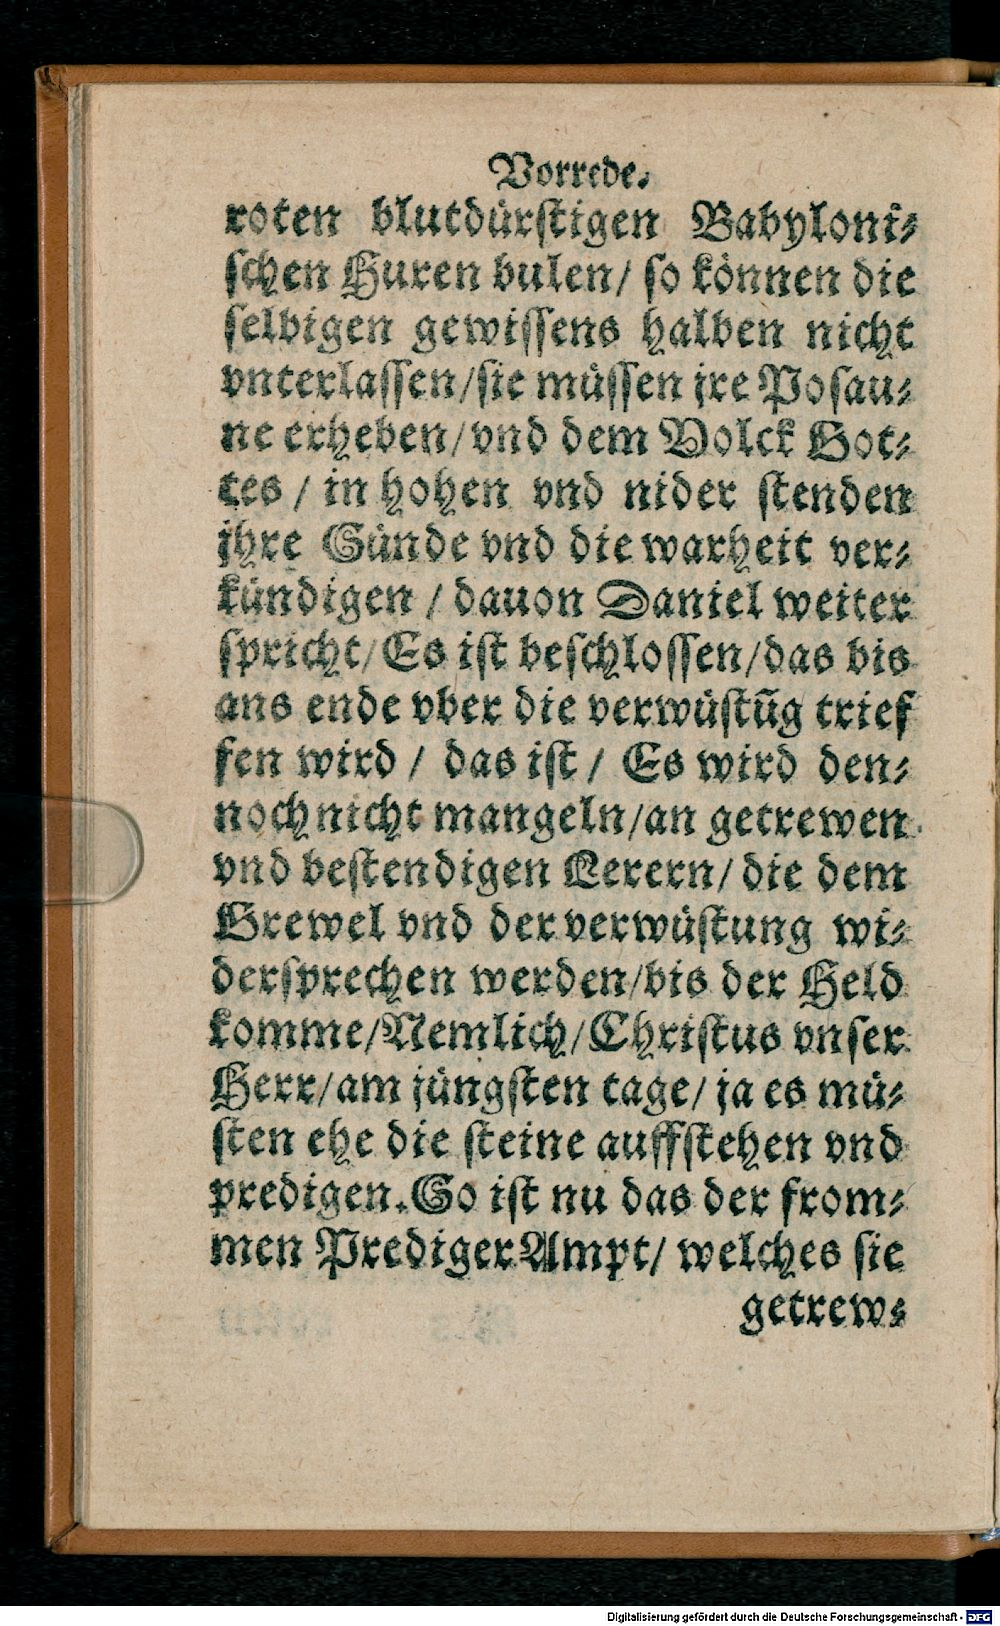 Vorrede.
roten blutdürstigen Babyloni⸗
schen Huren bulen/ so können die
selbigen gewissens halben nicht
vnterlassen/sie müssen jre Posau⸗
ne erheben/vnd dem Volck Got⸗
tes / in hohen vnd nider stenden
jhre Sünde vnd die warheit ver⸗
kündigen / dauon Daniel weiter
spricht/Es ist beschlossen/das bis
ans ende vber die verwüstūg trief
fen wird / das ist / Es wird den⸗
noch nicht mangeln/an getrewen
vnd bestendigen Lerern/ die dem
Grewel vnd der verwüstung wi⸗
dersprechen werden/bis der Held
komme/Nemlich/Christus vnser
Herr/am jüngsten tage/ ja es mü⸗
sten ehe die steine auffstehen vnd
predigen. So ist nu das der from⸗
men Prediger Ampt/ welches sie
getrew⸗
Digitalisierung gefördert durch die Deutsche Forschungsgemeinschaft - DFG